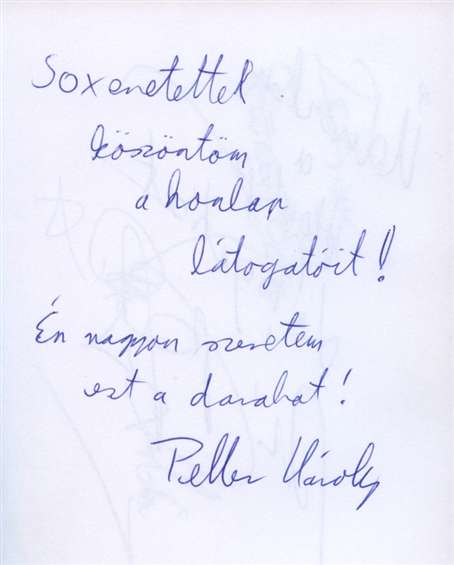 Sok szeretettel
köszöntöm
a honlap
látogatóit!
Én nagyon szeretem
ezt a darabot!
Peller Károly